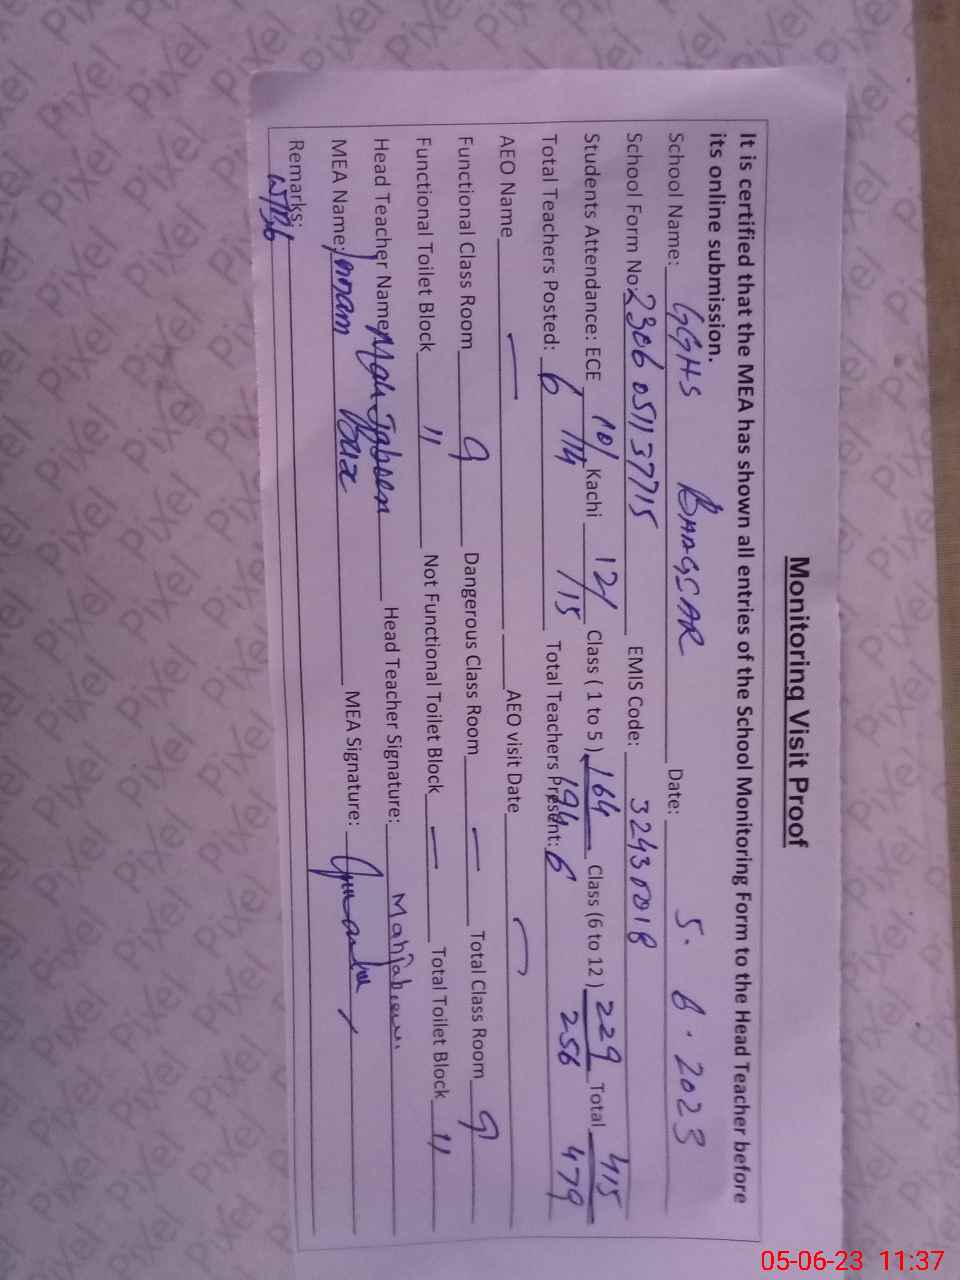 Monitoring Visit Proof
It is certified that the MEA has shown all entries of the School Monitoring Form to the Head Teacher before
its online submission.
School Name: GGHS BAAGSAR Date: 5. 6. 2023
School Form No: 2306 051137715 EMIS Code: 32430018
Students Attendance: ECE 10/14 Kachi 12/15 Class ( 1 to 5 ) 164/194 Class (6 to 12 ) 229/256 Total 415/479
Total Teachers Posted: 6 Total Teachers Present: 6
AEO Name — AEO visit Date —
Functional Class Room 9 Dangerous Class Room — Total Class Room 9
Functional Toilet Block 11 Not Functional Toilet Block — Total Toilet Block 11
Head Teacher Name: Mah Jabeen Head Teacher Signature: Mahjabeen.
MEA Name: MEA Signature:
Remarks:
PiXel
05-06-23 11:37